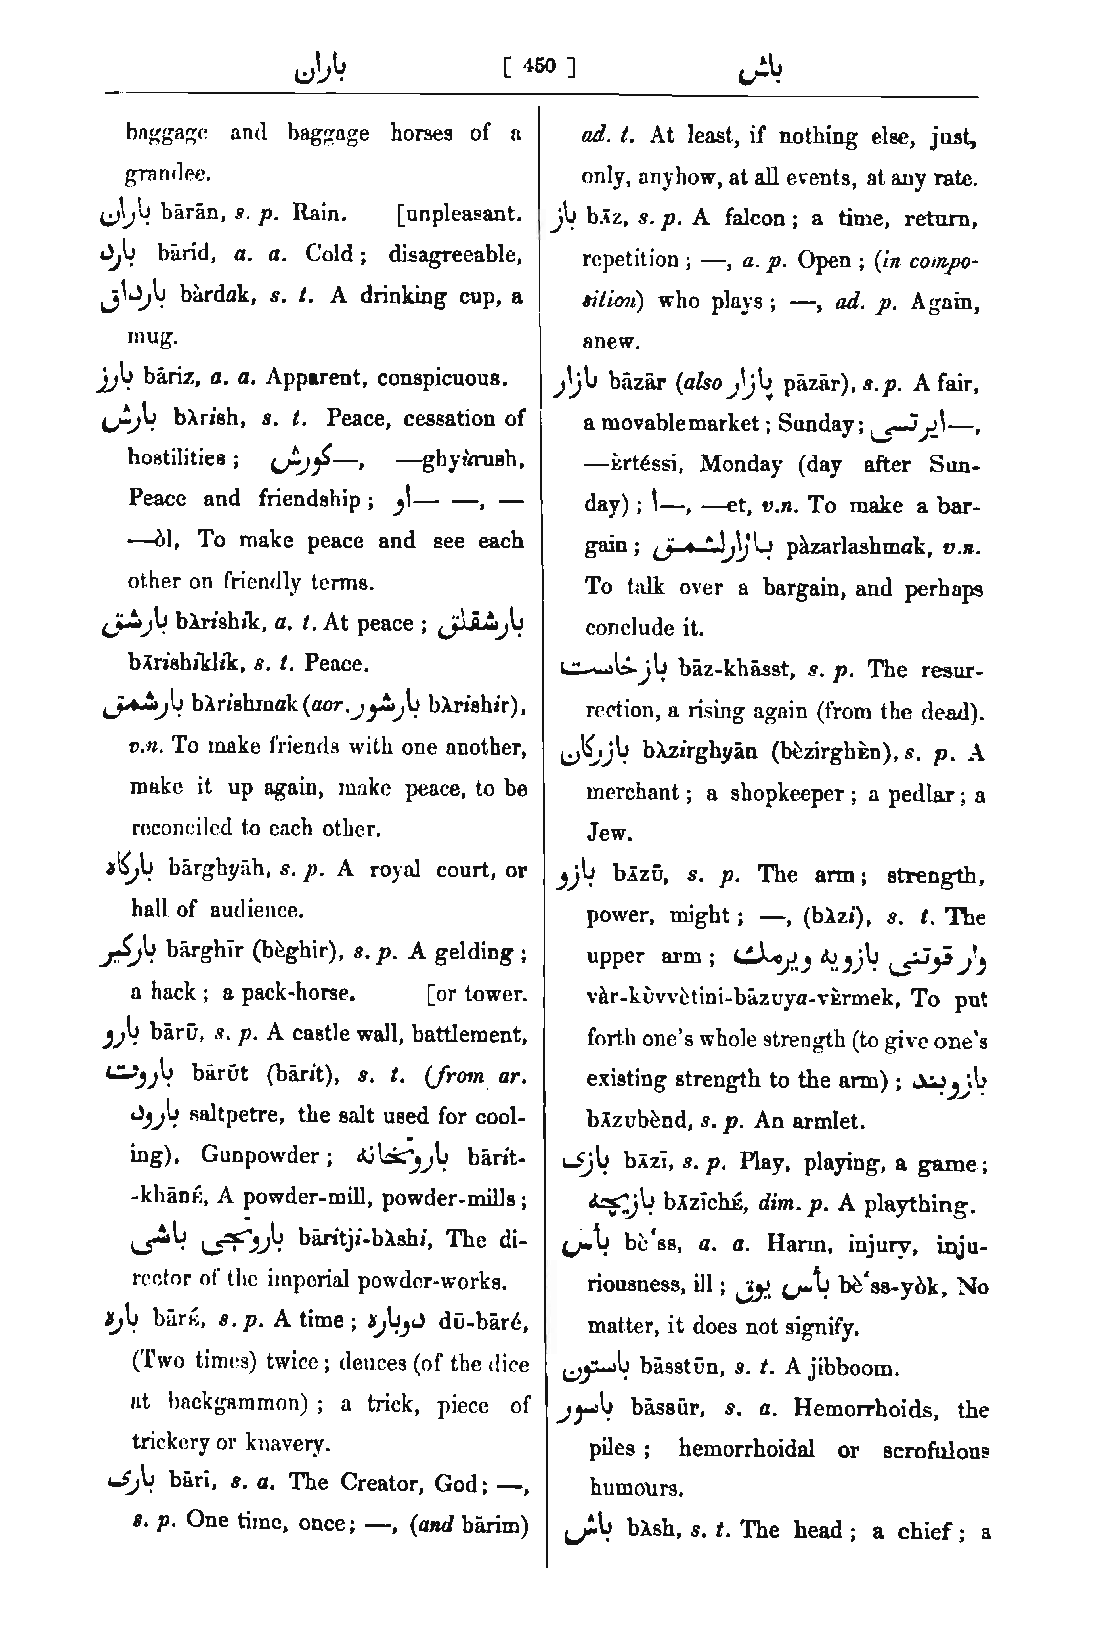 باران [ 450 ] باش
baggage and baggage horses of a
grandee.
باران bārān, s. p. Rain. [unpleasant.
بارد bārid, a. a. Cold; disagreeable,
بارداق bàrdak, s. t. A drinking cup, a
mug.
بارز bāriz, a. a. Apparent, conspicuous.
بارش bàrish, s. t. Peace, cessation of
hostilities; كورش—, —ghyùrush,
Peace and friendship; او— —, —
—òl, To make peace and see each
other on friendly terms.
بارشق bàrishik, a. t. At peace; بارشقلق
bārishiklik, s. t. Peace.
بارشمق bàrishmak (aor. بارشور bàrishir),
v.n. To make friends with one another,
make it up again, make peace, to be
reconciled to each other.
بارگاه bārghyāh, s. p. A royal court, or
hall of audience.
بارگير bārghīr (bèghir), s. p. A gelding;
a hack; a pack-horse. [or tower.
بارو bārū, s. p. A castle wall, battlement,
باروت bārūt (bārit), s. t. (from ar.
بارود saltpetre, the salt used for cool-
ing), Gunpowder; باروتخانه bārit-
-khāné, A powder-mill, powder-mills;
باروتجى باشى bāritji-bàshi, The di-
rector of the imperial powder-works.
باره bāré, s. p. A time; دوباره dū-bāré,
(Two times) twice; deuces (of the dice
at backgammon); a trick, piece of
trickery or knavery.
بارى bāri, s. a. The Creator, God; —,
s. p. One time, once; —, (and bārim)
ad. t. At least, if nothing else, just,
only, anyhow, at all events, at any rate.
باز bāz, s. p. A falcon; a time, return,
repetition; —, a. p. Open; (in compo-
sition) who plays; —, ad. p. Again,
anew.
بازار bāzār (also پازار pāzār), s. p. A fair,
a movable market; Sunday; ايرتسى—,
—èrtéssi, Monday (day after Sun-
day); ا—, —et, v.n. To make a bar-
gain; بازارلشمق pàzarlashmak, v.n.
To talk over a bargain, and perhaps
conclude it.
باز خاست bāz-khāsst, s. p. The resur-
rection, a rising again (from the dead).
بازرگان bàzirghyān (bèzirghèn), s. p. A
merchant; a shopkeeper; a pedlar; a
Jew.
بازو bāzū, s. p. The arm; strength,
power, might; —, (bàzi), s. t. The
upper arm; وار قوتنى بازويه ويرمك
vàr-kùvvètini-bāzuya-vèrmek, To put
forth one's whole strength (to give one's
existing strength to the arm); بازوبند
bāzubènd, s. p. An armlet.
بازى bāzī, s. p. Play, playing, a game;
بازيچه bāzīché, dim. p. A plaything.
بأس bè'ss, a. a. Harm, injury, inju-
riousness, ill; بأس يوق bè'ss-yòk, No
matter, it does not signify.
باستون bāsstūn, s. t. A jibboom.
باسور bāssūr, s. a. Hemorrhoids, the
piles; hemorrhoidal or scrofulous
humours.
باش bàsh, s. t. The head; a chief; a